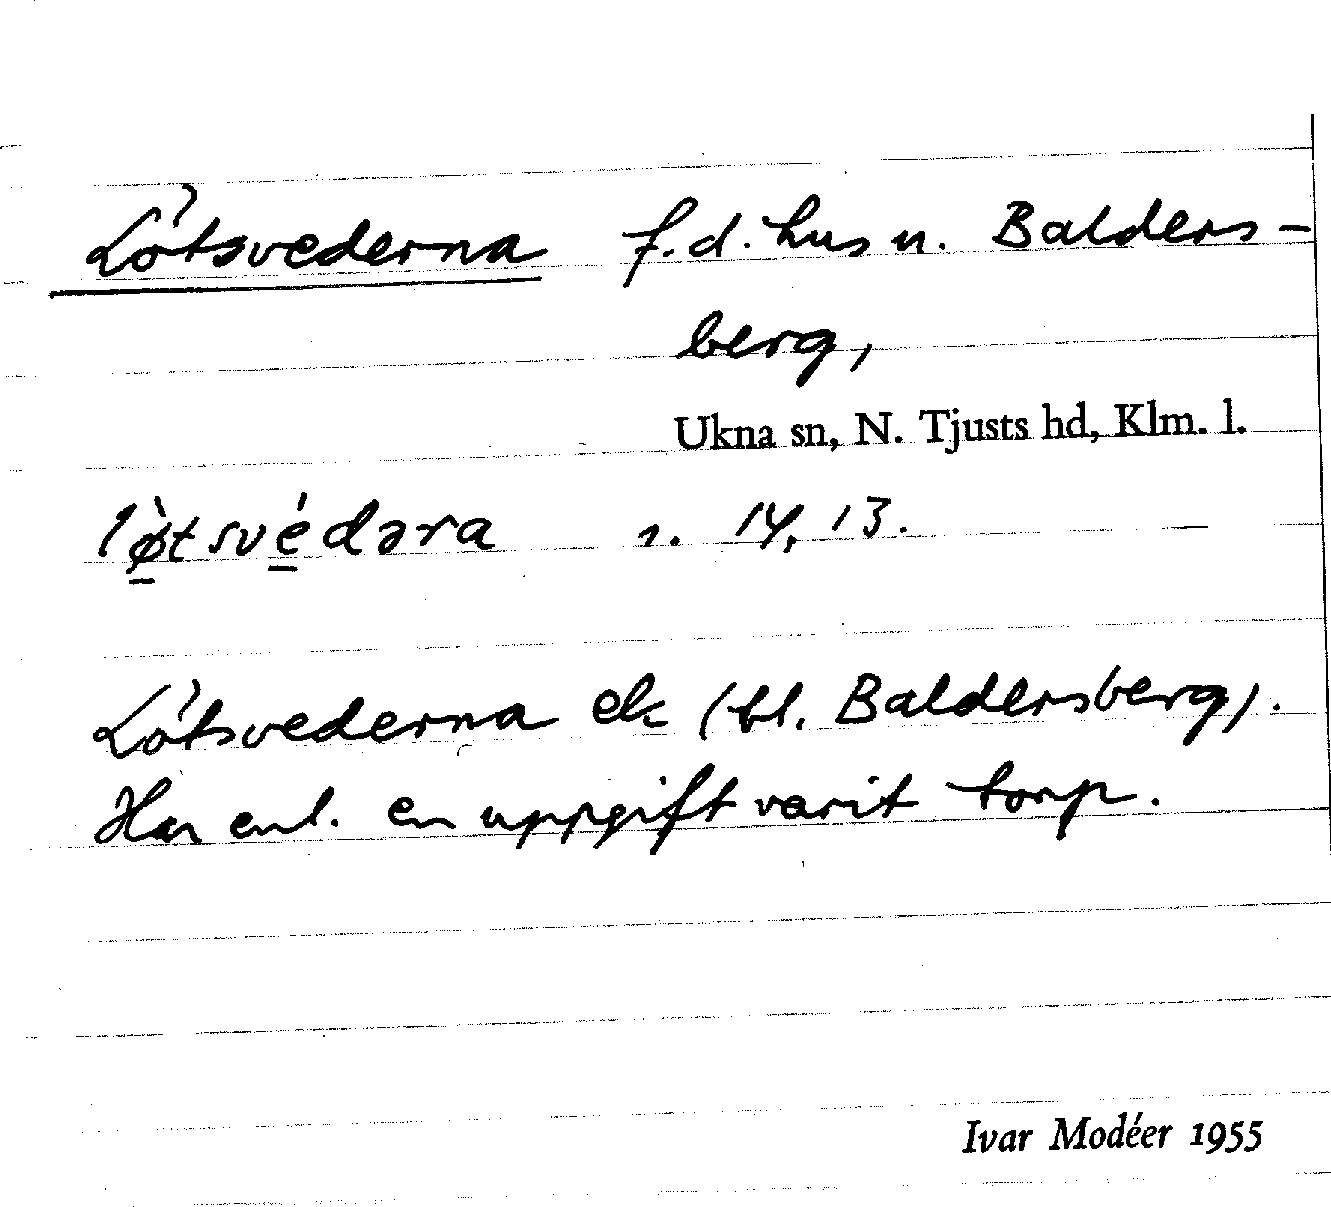 Lötsvederna f.d. hus n. Balders-
berg,
Ukna sn, N. Tjusts hd, Klm. l.
lø̱̀tsvé̱dəra r. 14, 13.
Lötsvederna ek (bl. Baldersberg).
Har enl. en uppgift varit torp.
Ivar Modéer 1955